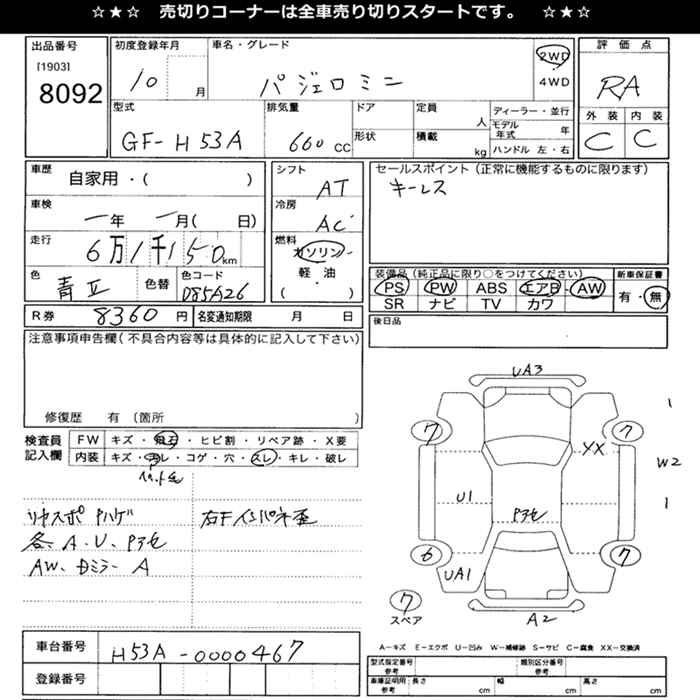 ☆★☆ 売切りコーナーは全車売り切りスタートです。 ☆★☆
出品番号
[1903]
8092
初度登録年月
10 月
車名・グレード
パジェロミニ
2WD
4WD
評価点
RA
外装 内装
C C
型式
GF-H53A
排気量
660 cc
ドア
形状
定員
人
積載
kg
ディーラー・並行
モデル年式 年
ハンドル 左・右
車歴
自家用・( )
車検
年 月( 日)
走行
6万1千150km
色
色替
色コード
D85A26
シフト
AT
冷房
AC
燃料
ガソリン
軽・油
( )
セールスポイント(正常に機能するものに限ります)
キーレス
装備品(純品正に限り○をつけてください)
PS PW ABS エアB AW
SR ナビ TV カワ
新車保証書
有・無
R券 8360 円
名変通知期限 月 日
後日品
注意事項申告欄(不具合内容等は具体的に記入して下さい)
修復歴 有(箇所 )
検査員記入欄
FW キズ・飛石・ヒビ割・リペア跡・X要
内装 キズ・汚レ・コゲ・穴・スレ・キレ・破レ
リヤスポ Pハゲ
各、A・U、Pアセ
AW、Bミラー A
UA3
7
7
XX
1
W2
1
U1
Pアセ
6
7
UA1
7
スペア
A2
A―キズ E―エクボ U―凹み W―補修跡 S―サビ C―腐食 XX―交換済
車台番号
H53A-0000467
登録番号
型式指定番号 参考
類別区分番号 参考
車庫証明用 参考
長さ cm
幅 cm
高さ cm